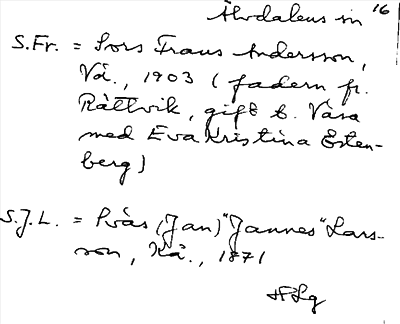 Älvdalens sn 16
S.Fr. = Sors Frans Andersson,
Vå., 1903 (fadern fr.
Rättvik, gift t. Våsa
med Eva Kristina Esten-
berg)
S.J.L. = Prås (Jan) "Jannes" Lars-
son, Kå., 1871